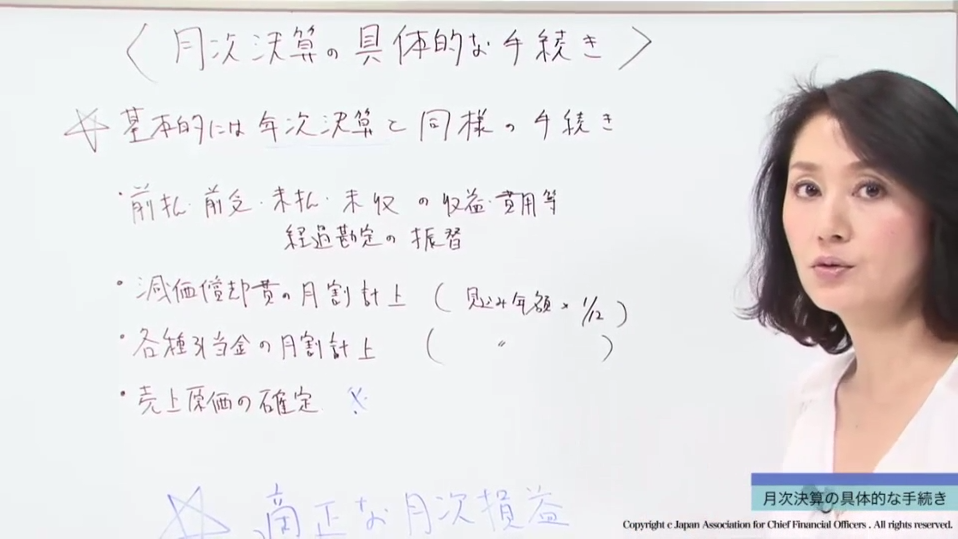 〈月次決算の具体的な手続き〉
☆基本的には年次決算と同様の手続き
・前払・前受・未払・未収の収益・費用等
経過勘定の振替
・減価償却費の月割計上(見込み年額×1/12)
・各種引当金の月割計上(〃)
・売上原価の確定 ※
☆適正な月次損益
月次決算の具体的な手続き
Copyright c Japan Association for Chief Financial Officers . All rights reserved.